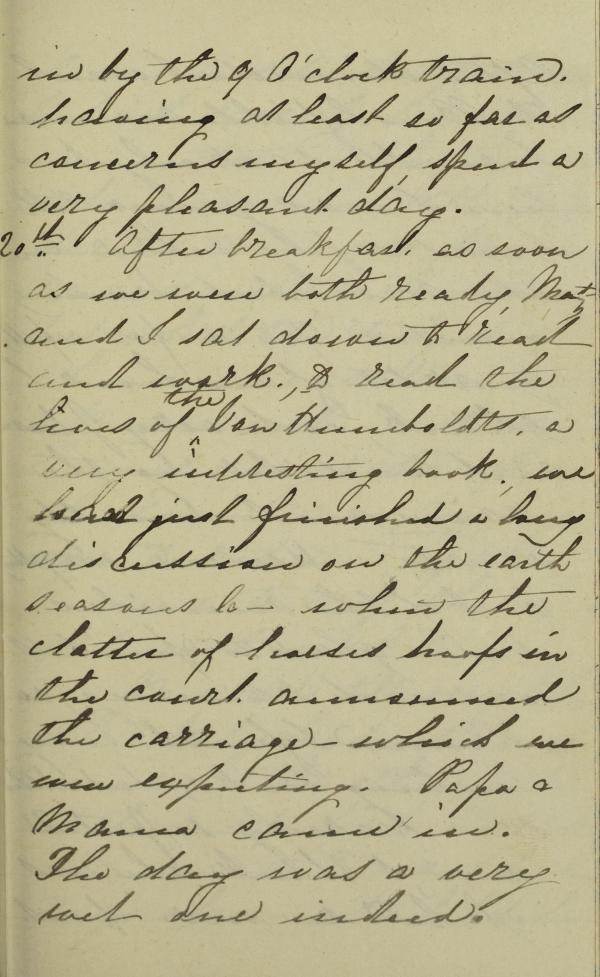 in by the 9 O'clock train.
having at least so far as
concerns myself, spent a
very pleasant day.
20th After breakfast. as soon
as we were both ready, Mat
and I sat down to read
and work., I read the
lives of the Von Humboldts. a
very interesting book, we
had just finished a long
discussion on the earth
seasons &c — when the
clatter of horses hoofs in
the court. announced
the carriage — which we
were expecting. Papa &
Mama came in.
The day was a very
wet one indeed.